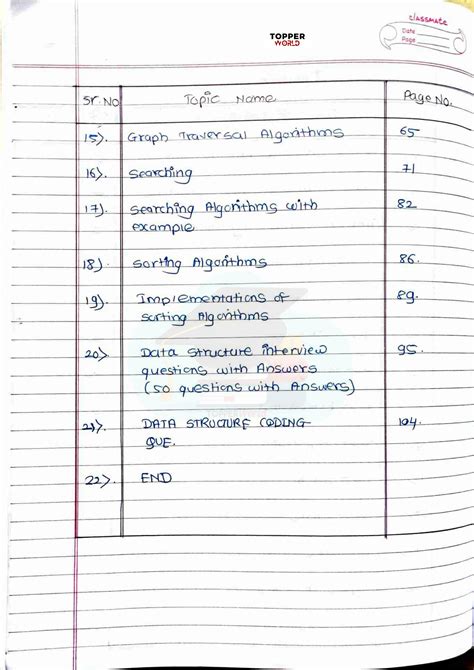 TOPPER
WORLD
classmate
Date
Page
Sr. No Topic Name Page No.
15). Graph Traversal Algorithms 65
16). Searching 71
17). Searching Algorithms with 82
example
18). Sorting Algorithms 86.
19). Implementations of 89.
sorting Algorithms
20). Data Structure interview 95.
questions with Answers
(50 questions with Answers)
21). DATA STRUCTURE CODING 104.
QUE.
22). END